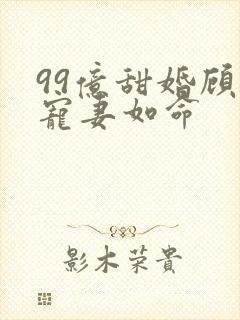 99億甜婚顾
寵妻如命
影木荣貴